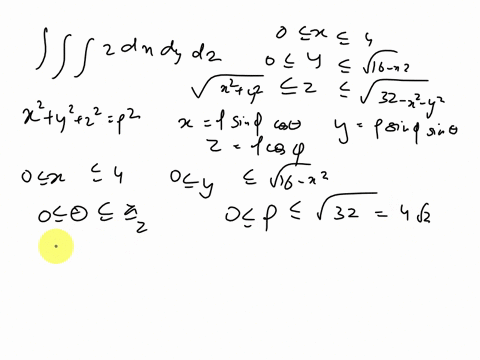 ∫∫∫ z dx dy dz    0 ≤ x ≤ 4
0 ≤ y ≤ √16-x²
√x²+y² ≤ z ≤ √32-x²-y²
x²+y²+z² = ρ²    x = ρ sinφ cosθ    y = ρ sinφ sinθ
z = ρ cosφ
0 ≤ x ≤ 4    0 ≤ y ≤ √16-x²
0 ≤ θ ≤ π/2    0 ≤ ρ ≤ √32 = 4√2